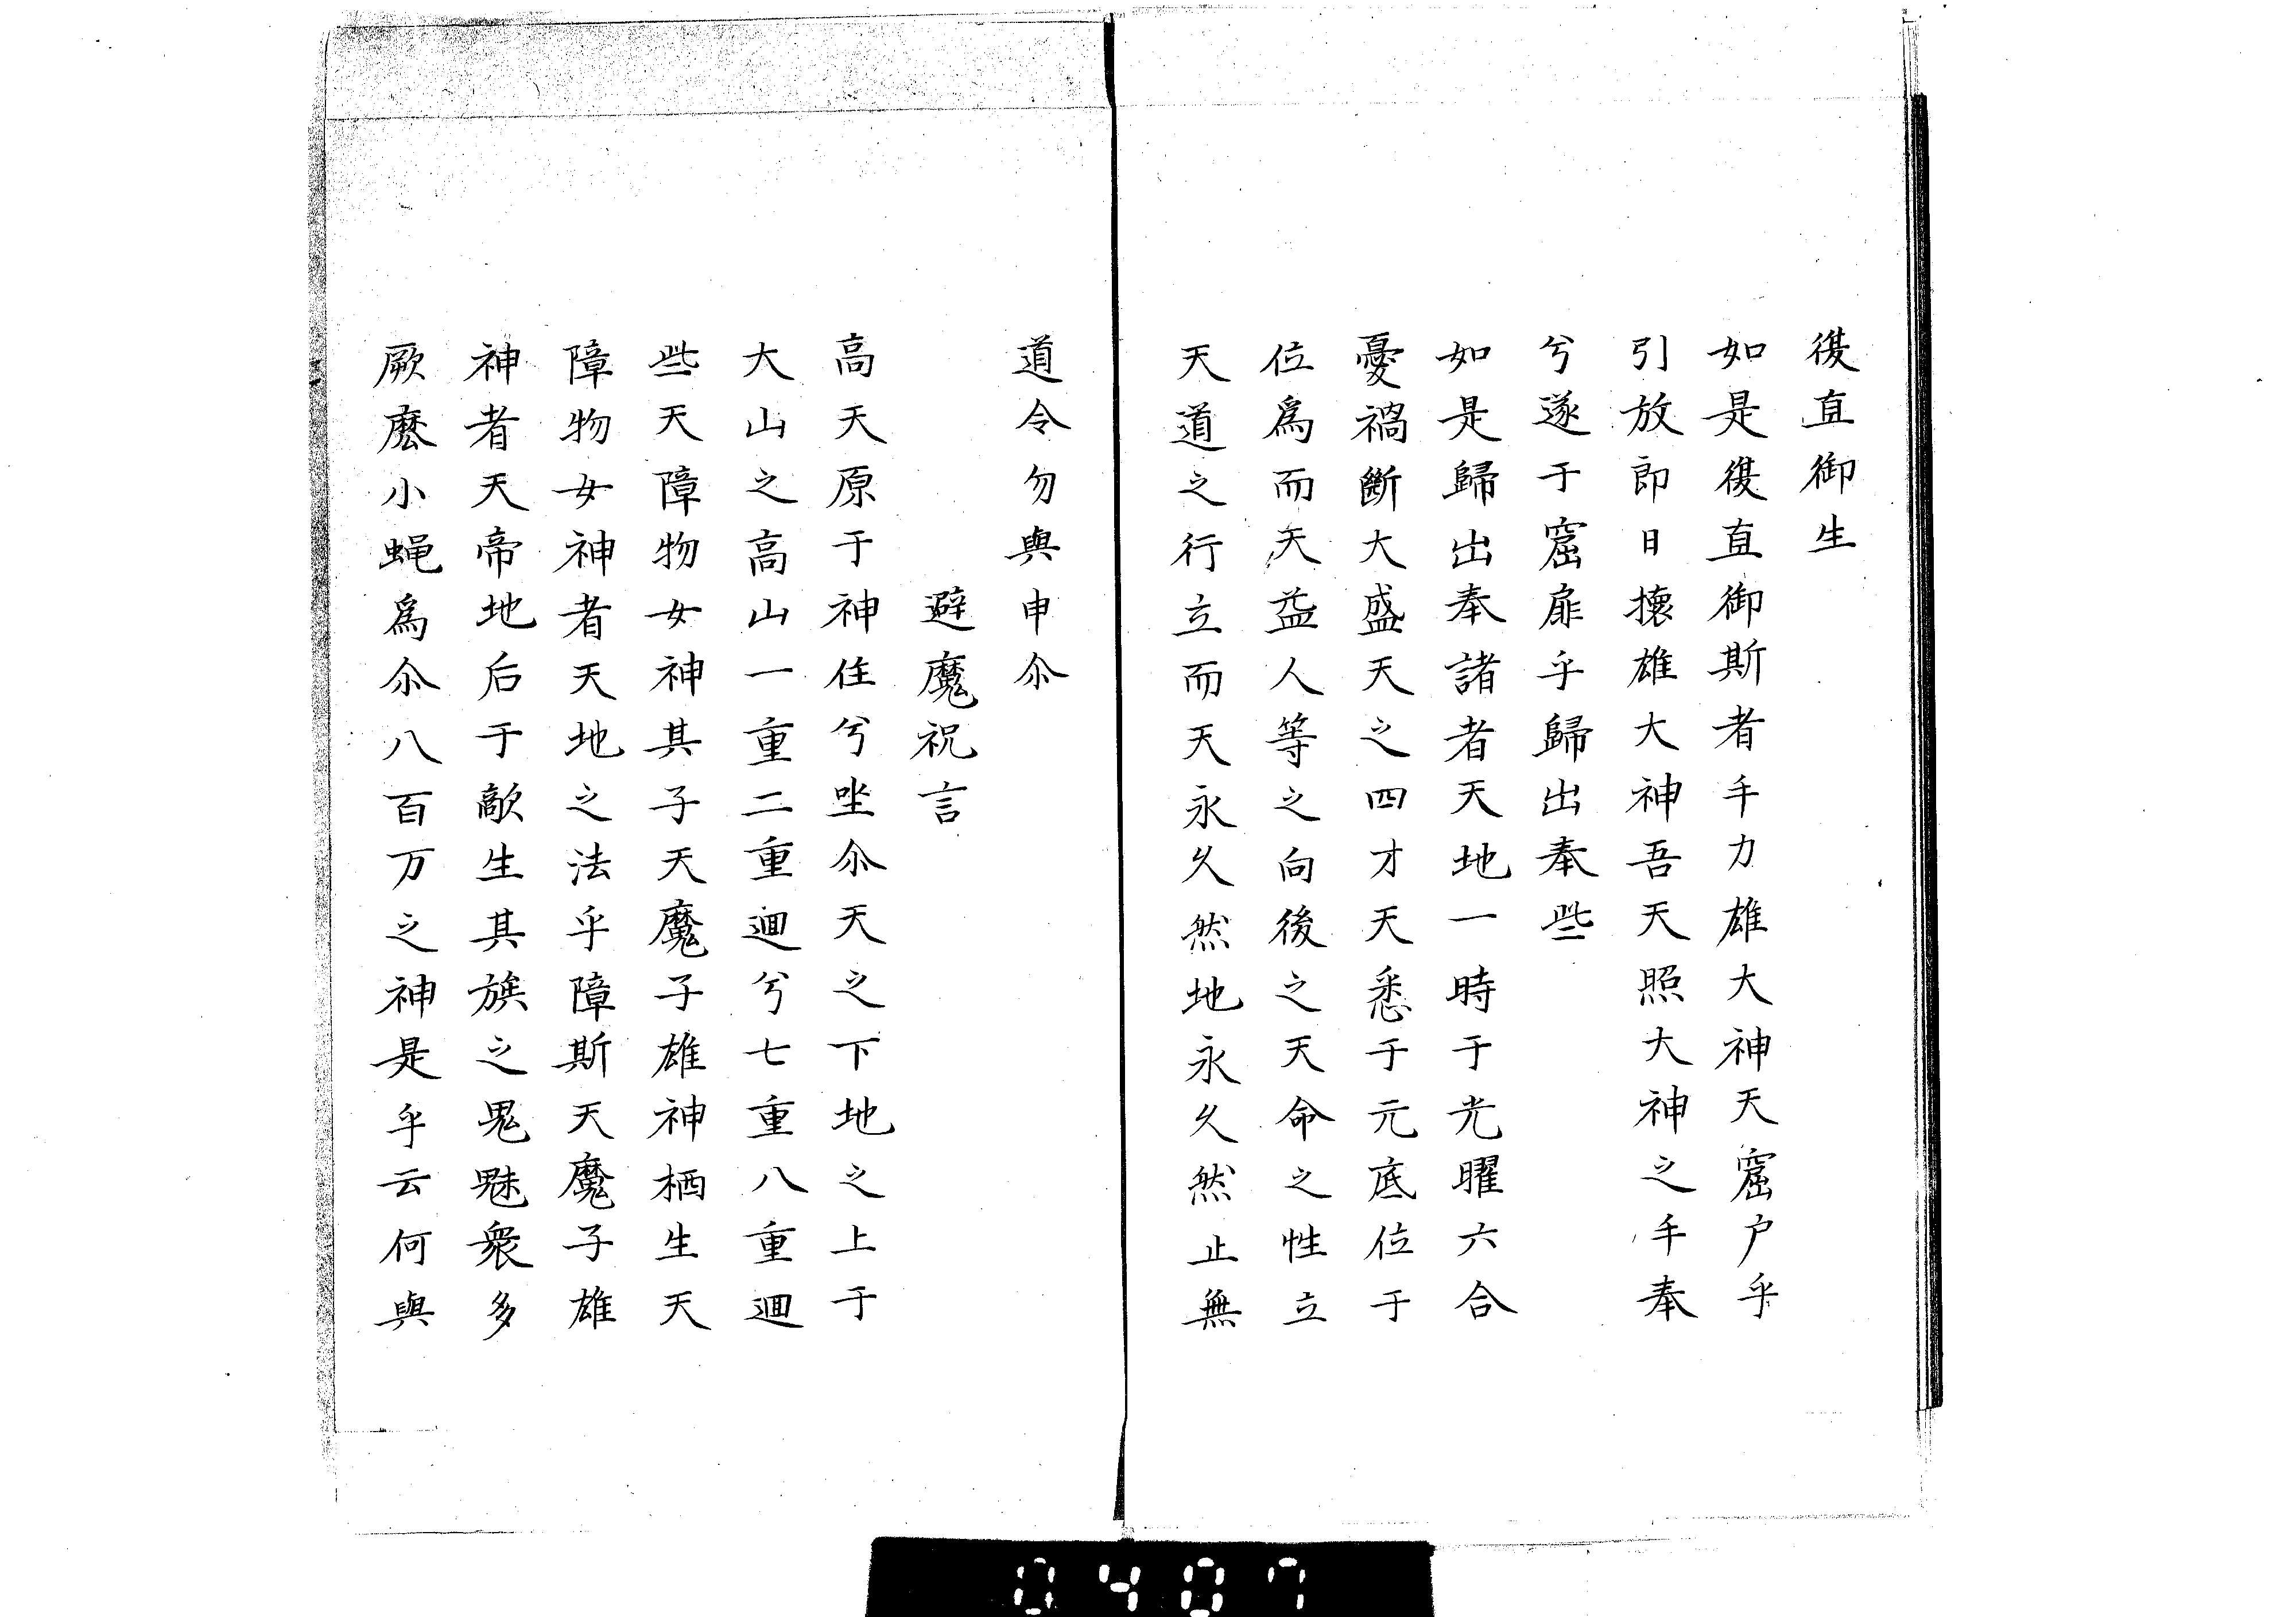 復直御生
如是復直御斯者手力雄大神天窟户乎
引放即日懐雄大神吾天照大神之手奉
兮遂于窟扉乎歸出奉些
如是歸出奉諸者天地一時于光曜六合
憂禍斷大盛天之四才天悉于元底位于
位爲而天益人等之向後之天命之性立
天道之行立而天永久然地永久然止無
道令勿與申尒
避魔祝言
高天原于神住兮坐尒天之下地之上于
大山之高山一重二重廻兮七重八重廻
些天障物女神其子天魔子雄神栖生天
障物女神者天地之法乎障斯天魔子雄
神者天帝地后于敵生其族之鬼魅衆多
厥麽小蝿爲尒八百万之神是乎云何與
0407